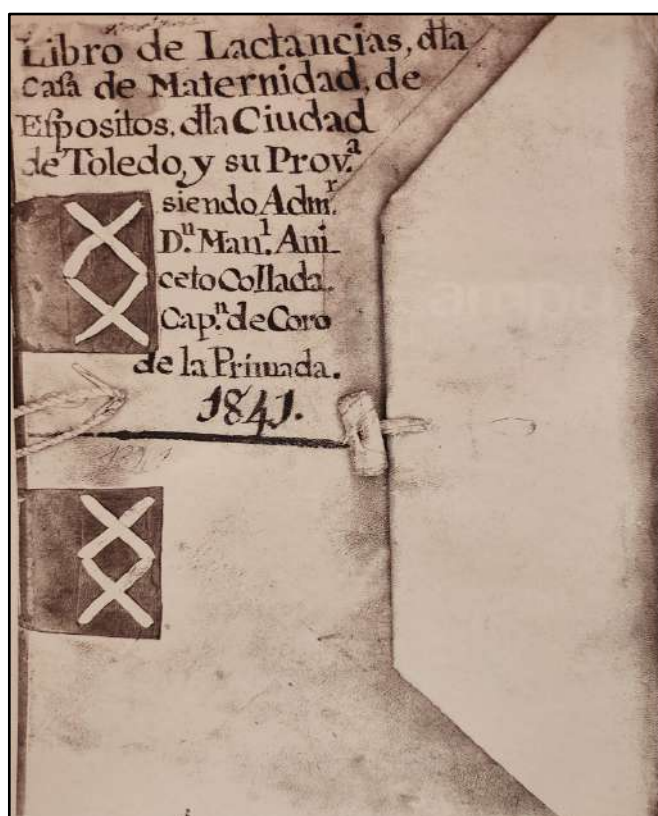 Libro de Lactancias, dla
Casa de Maternidad, de
Espositos, dla Ciudad
de Toledo, y su Prov.ª
siendo Adm.r
D.n Man.l Ani_
ceto Collada.
Cap.n de Coro
de la Primada.
1841.